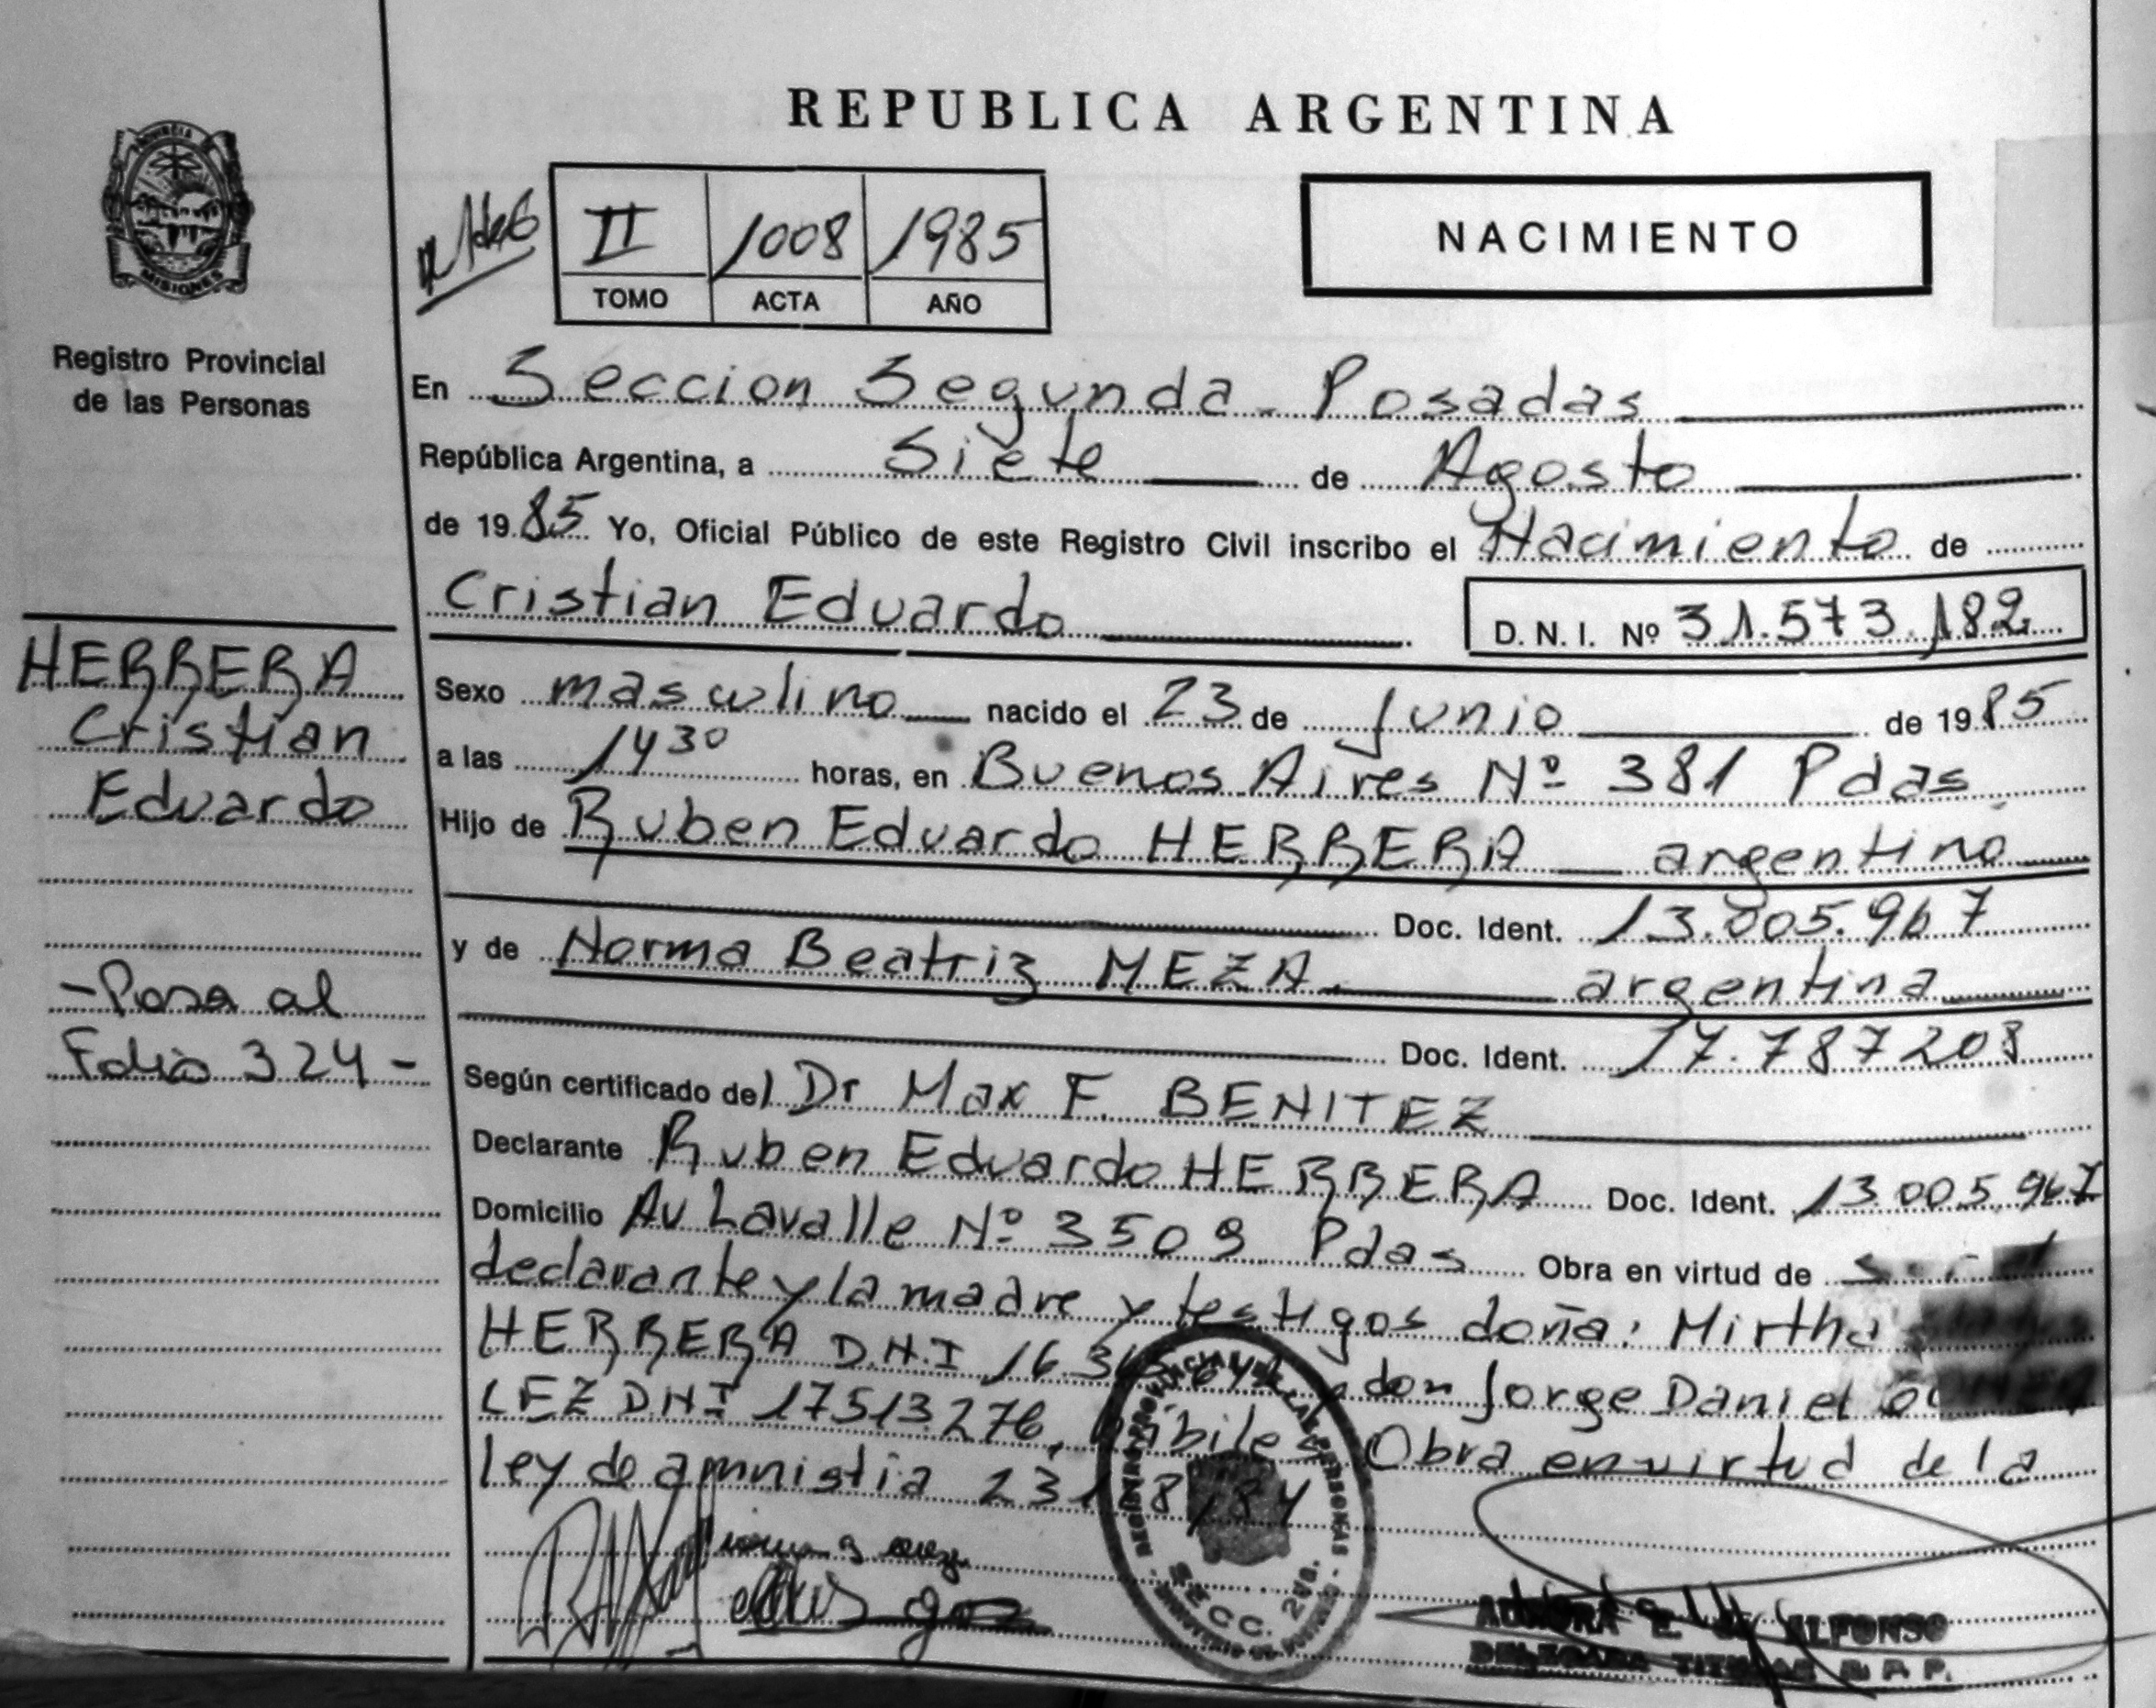 REPUBLICA ARGENTINA
PROVINCIA
MISIONES
Registro Provincial
de las Personas
II 1008 1985
TOMO ACTA AÑO
NACIMIENTO
En Seccion Segunda - Posadas
República Argentina, a Siete de Agosto
de 1985 Yo, Oficial Público de este Registro Civil inscribo el Nacimiento de
Cristian Eduardo
D. N. I. Nº 31.573.182
HERRERA
Cristian
Eduardo
- Pasa al
Folio 324 -
Sexo masculino nacido el 23 de Junio de 1985
a las 14 30 horas, en Buenos Aires Nº 381 Pdas
Hijo de Ruben Eduardo HERRERA argentino
Doc. Ident. 13.005.967
y de Norma Beatriz MEZA argentina
Doc. Ident. 17.787208
Según certificado del Dr Max F. BENITEZ
Declarante Ruben Eduardo HERRERA Doc. Ident. 13005967
Domicilio Av Lavalle Nº 3509 Pdas Obra en virtud de
declarante y la madre y testigos doña: Mirtha
HERRERA D.N.I don Jorge Daniel
LEZ D.N.I 17513276, Obra en virtud de la
ley de amnistia
SECC. 2da.
ALFONSO
DELEGADA TITULAR R. P. P.